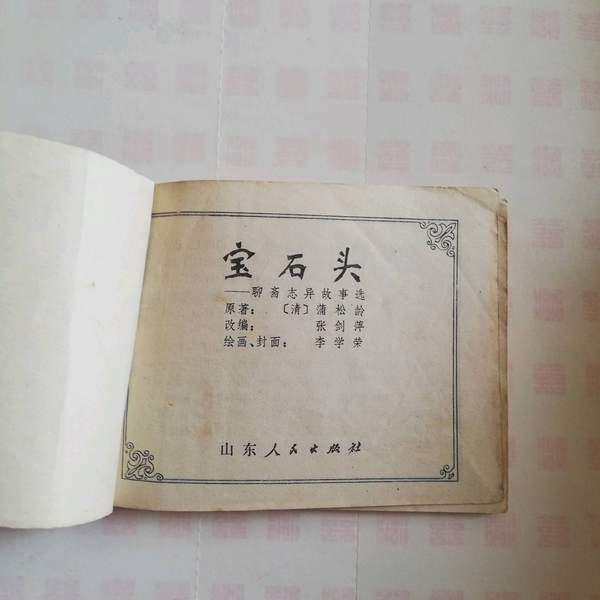 宝石头
——聊斋志异故事选
原著：〔清〕蒲松龄
改编：张剑萍
绘画、封面：李学荣
山东人民出版社